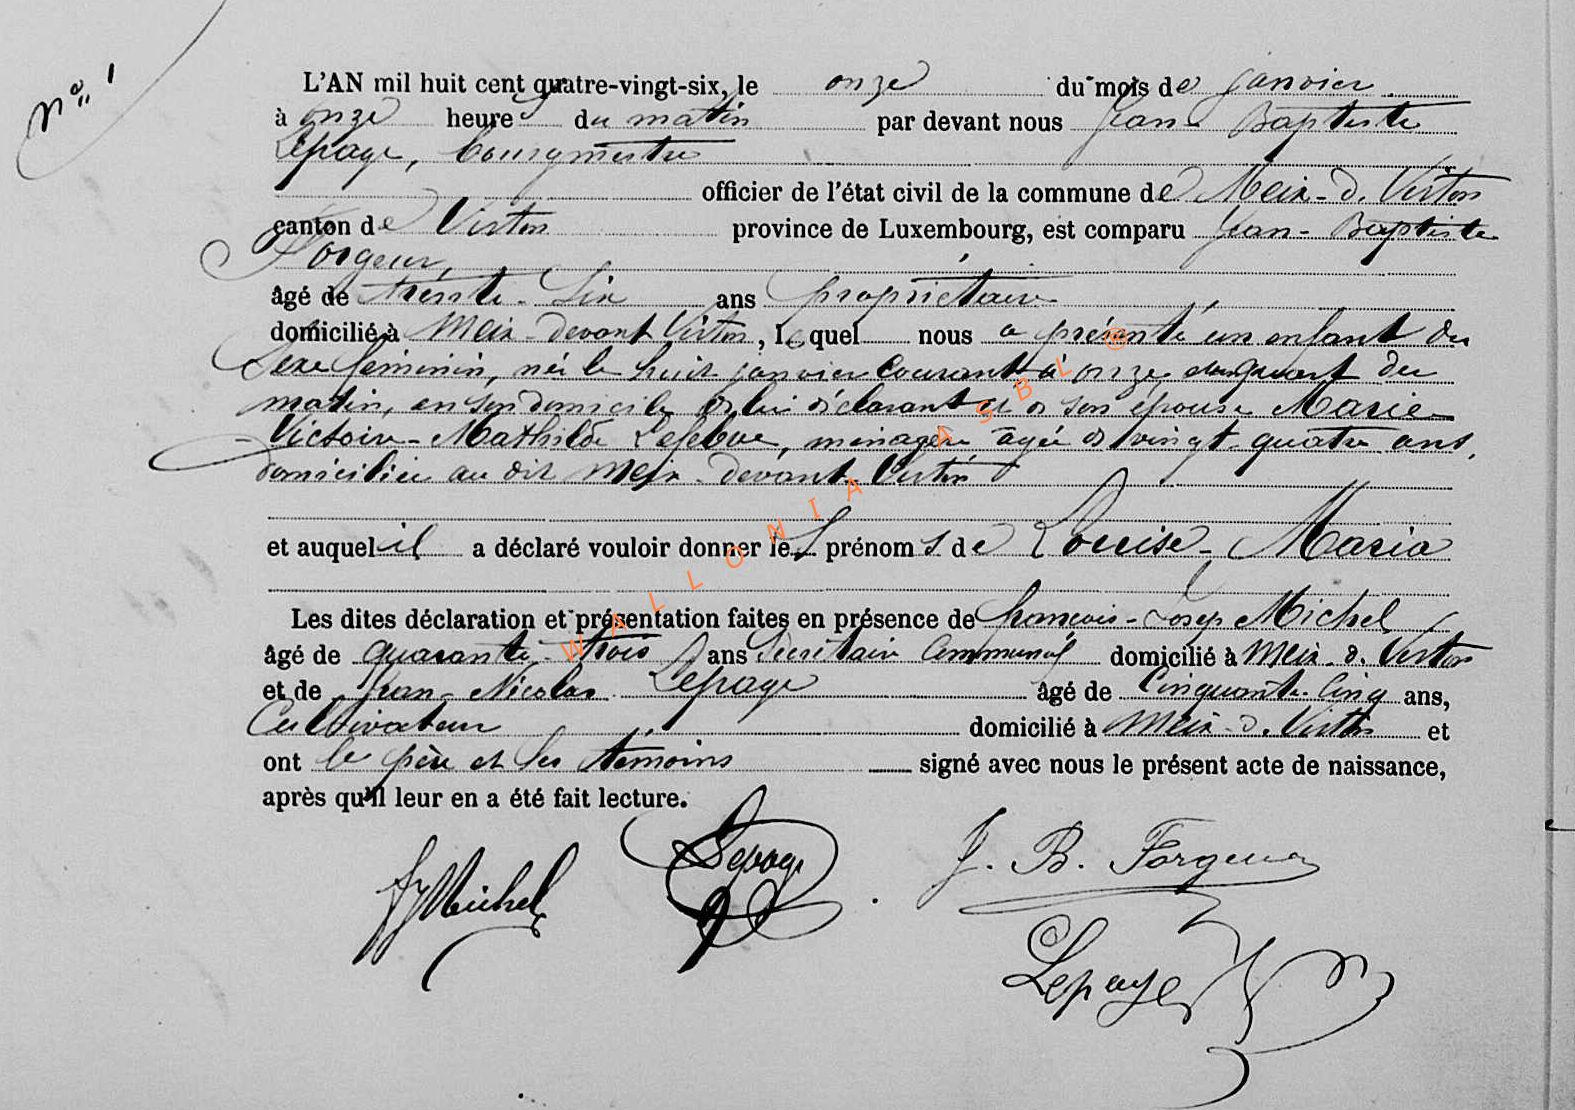 N° 1
L'AN mil huit cent quatre-vingt-six, le onze du mois de janvier
à onze heures du matin par devant nous Jean Baptiste
Lepage, bourgmestre
officier de l'état civil de la commune de Meix-d. Virton
canton de Virton province de Luxembourg, est comparu Jean-Baptiste
Forgeur,
âgé de trente-six ans propriétaire
domicilié à Meix-devant Virton, lequel nous a présenté un enfant du
sexe féminin, née le huit janvier courant à onze du
matin, en son domicile de lui déclarant et de son épouse Marie-
Victoire-Mathilde Lefebvre, ménagère âgée de vingt-quatre ans,
domiciliée au dit Meix-devant Virton
et auquel il a déclaré vouloir donner les prénoms de Louise-Maria
Les dites déclaration et présentation faites en présence de françois-Josep Michel,
âgé de quarante-trois ans Secrétaire Communal domicilié à Meix-d. Virton
et de Jean-Nicolas Lepage âgé de Cinquante-Cinq ans,
Cultivateur domicilié à Meix-d. Virton et
ont le père et les témoins signé avec nous le présent acte de naissance,
après qu'il leur en a été fait lecture.
fJMichel Lepage J. B. Forgeur
Lepage
WALLONIA ASBL ®